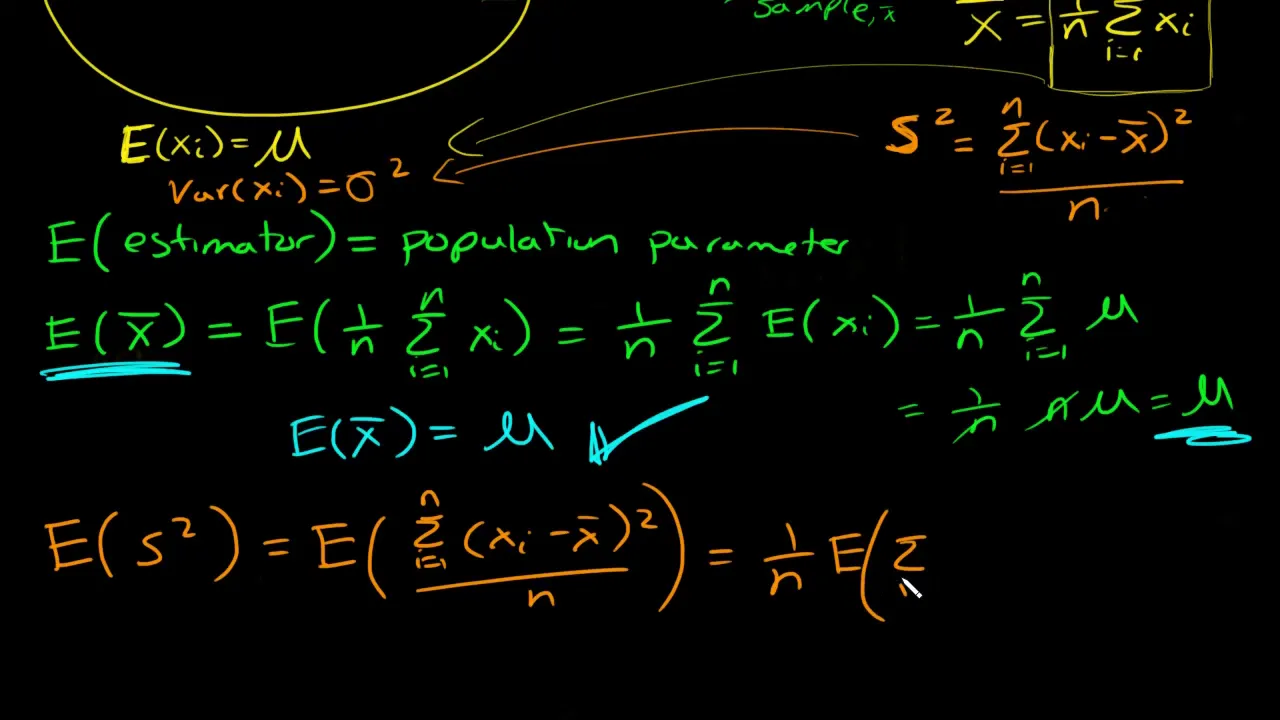 sample, x̄
x̄ = 1/n Σ_{i=1} xᵢ
E(xᵢ) = μ
Var(xᵢ) = σ²
s² = Σ_{i=1}^{n} (xᵢ - x̄)² / n
E(estimator) = population parameter
E(x̄) = E(1/n Σ_{i=1}^{n} xᵢ) = 1/n Σ_{i=1}^{n} E(xᵢ) = 1/n Σ_{i=1}^{n} μ
= 1/n n μ = μ
E(x̄) = μ ✓
E(s²) = E(Σ_{i=1}^{n} (xᵢ - x̄)² / n) = 1/n E(Σ